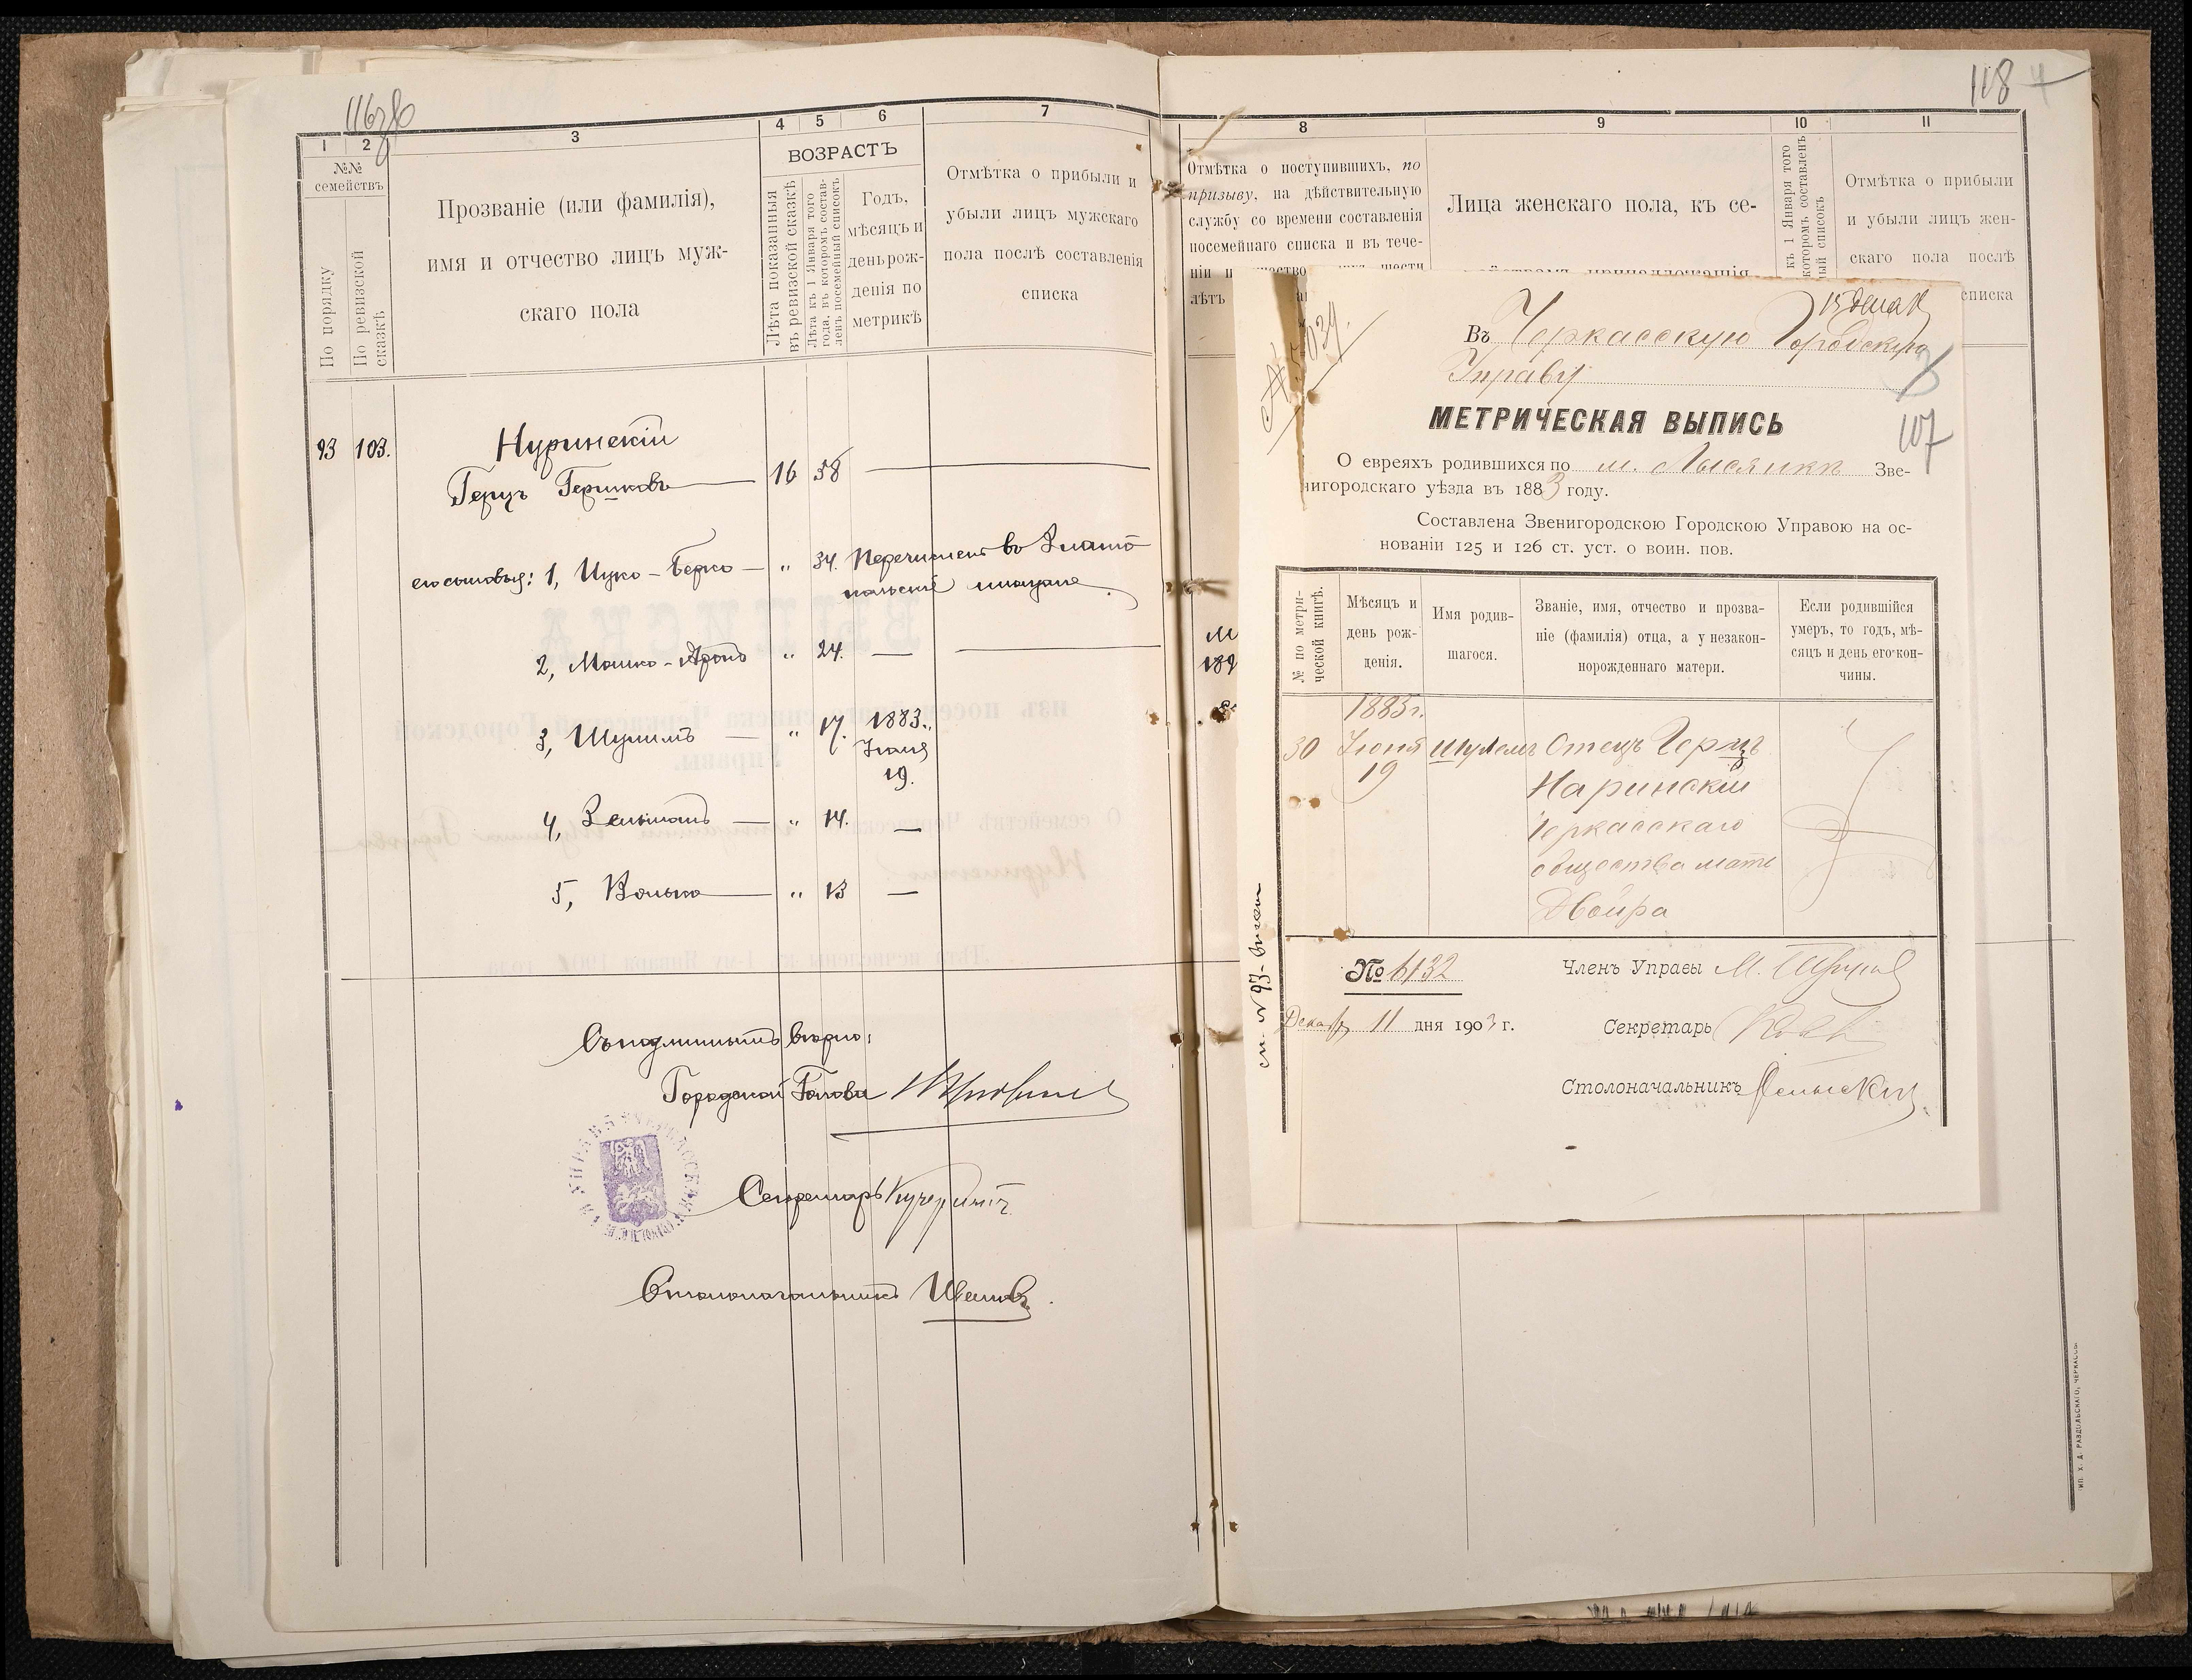 116
1
2
3
4
5
6
7
№№
семействъ
По порядку
По ревизской
сказкѣ
Прозваніе (или фамилія),
имя и отчество лицъ муж-
скаго пола
ВОЗРАСТЪ
Лѣта показанныя
въ ревизской сказкѣ
Лѣта къ 1 Января того
года, въ которомъ состав-
ленъ посемейный списокъ
Годъ,
мѣсяцъ и
день рож-
денія по
метрикѣ
Отмѣтка о прибыли и
убыли лицъ мужскаго
пола послѣ составленія
списка
93 103.
Нуринскій
Герцъ Гершковъ 16 58
его сыновья: 1, Ицко-Берко „ 34. Перечисленъ въ Злато
польскіе мещане.
2, Мошко-Аронъ „ 24. —
3, Шулимъ — „ 17. 1883.
Іюня
19.
4, Зельманъ — „ 14. —
5, Волько — „ 13 —
Съ подлиннымъ вѣрно:
Городской Голова
Секретарь
Столоначальникъ
118
8
9
10
11
Отмѣтка о поступившихъ, по
призыву, на дѣйствительную
службу со времени составленія
посемейнаго списка и въ тече-
ніи
лѣтъ
Лица женскаго пола, къ се-
къ 1 Января того
которомъ составленъ
ный списокъ
Отмѣтка о прибыли
и убыли лицъ жен-
скаго пола послѣ
списка
М
189
Въ Черкасскую Городскую
Управу
107
МЕТРИЧЕСКАЯ ВЫПИСЬ
О евреяхъ родившихся по м. Лысянкѣ Зве-
нигородскаго уѣзда въ 1883 году.
Составлена Звенигородскою Городскою Управою на ос-
нованіи 125 и 126 ст. уст. о воин. пов.
№ по метри-
ческой книгѣ.
Мѣсяцъ и
день рож-
денія.
Имя родив-
шагося.
Званіе, имя, отчество и прозва-
ніе (фамилія) отца, а у незакон-
норожденнаго матери.
Если родившійся
умеръ, то годъ, мѣ-
сяцъ и день его кон-
чины.
1883 г.
30 Іюня Шулемъ Отецъ Герцъ
19 Наринскій
Черкасскаго
общества мать
Двойра
№ 6132
Членъ Управы
Декабр 11 дня 1903 г.
Секретарь
Столоначальникъ
см. № 93
ТИП. Х. Д. РАЗДОЛЬСКАГО, ЧЕРКАССЫ